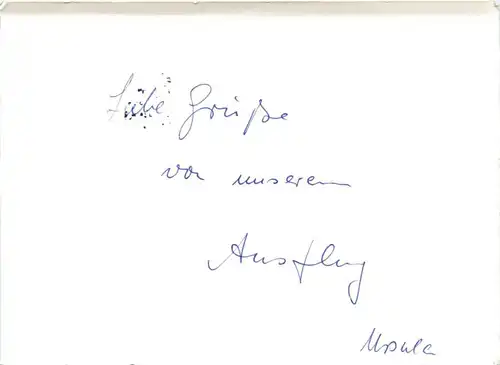 Liebe Grüße
von unserem
Ausflug
Ursula